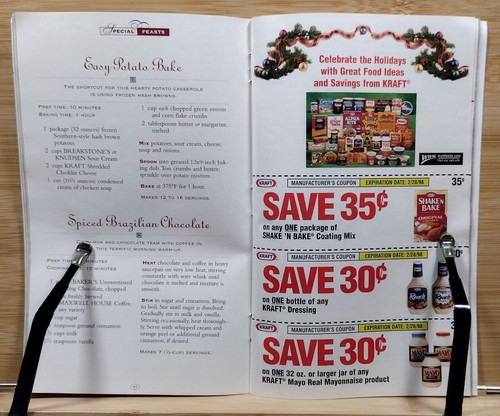 SPECIAL FEASTS
Easy Potato Bake
THE SHORTCUT FOR THIS HEARTY POTATO CASSEROLE
IS USING FROZEN HASH BROWNS.
PREP TIME: 10 MINUTES
BAKING TIME: 1 HOUR
1 package (32 ounces) frozen
Southern-style hash brown
potatoes
2 cups BREAKSTONE'S or
KNUDSEN Sour Cream
2 cups KRAFT Shredded
Cheddar Cheese
1 can (10¾ ounces) condensed
cream of chicken soup
1 cup each chopped green onions
and corn flake crumbs
2 tablespoons butter or margarine,
melted
MIX potatoes, sour cream, cheese,
soup and onions.
SPOON into greased 13x9-inch baking
dish. Toss crumbs and butter;
sprinkle over potato mixture.
BAKE at 375°F for 1 hour.
MAKES 12 TO 16 SERVINGS.
Spiced Brazilian Chocolate
AND CHOCOLATE TEAM WITH COFFEE IN
THIS TERRIFIC MORNING WARM-UP.
PREP TIME:
MINUTES
BAKER'S Unsweetened
Chocolate, chopped
freshly brewed
MAXWELL HOUSE Coffee,
any variety
cup sugar
teaspoon ground cinnamon
cups milk
teaspoons vanilla
HEAT chocolate and coffee in heavy
saucepan on very low heat, stirring
constantly with wire whisk until
chocolate is melted and mixture is
smooth.
STIR in sugar and cinnamon. Bring
to boil. Stir until sugar is dissolved.
Gradually stir in milk and vanilla.
Stirring occasionally, heat thoroughly.
Serve with whipped cream and
orange peel or additional ground
cinnamon, if desired.
Celebrate the Holidays
with Great Food Ideas
and Savings from KRAFT®
KRAFT MANUFACTURER'S COUPON EXPIRATION DATE: 2/28/98 35¢
SAVE 35¢
on any ONE package of
SHAKE 'N BAKE® Coating Mix
SHAKE N BAKE
ORIGINAL
KRAFT MANUFACTURER'S COUPON EXPIRATION DATE: 2/28/98
SAVE 30¢
on ONE bottle of any
KRAFT® Dressing
Ranch
KRAFT MANUFACTURER'S COUPON EXPIRATION DATE: 2/28/98
SAVE 30¢
on ONE 32 oz. or larger jar of any
KRAFT® Mayo Real Mayonnaise product
MAYO
MAYO